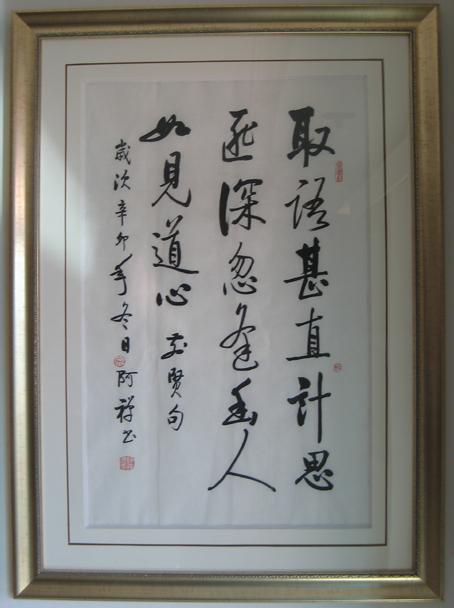 取語甚直計思
匪深忽逢幽人
如見道心 前賢句
歲次辛卯年冬日 阿祥书